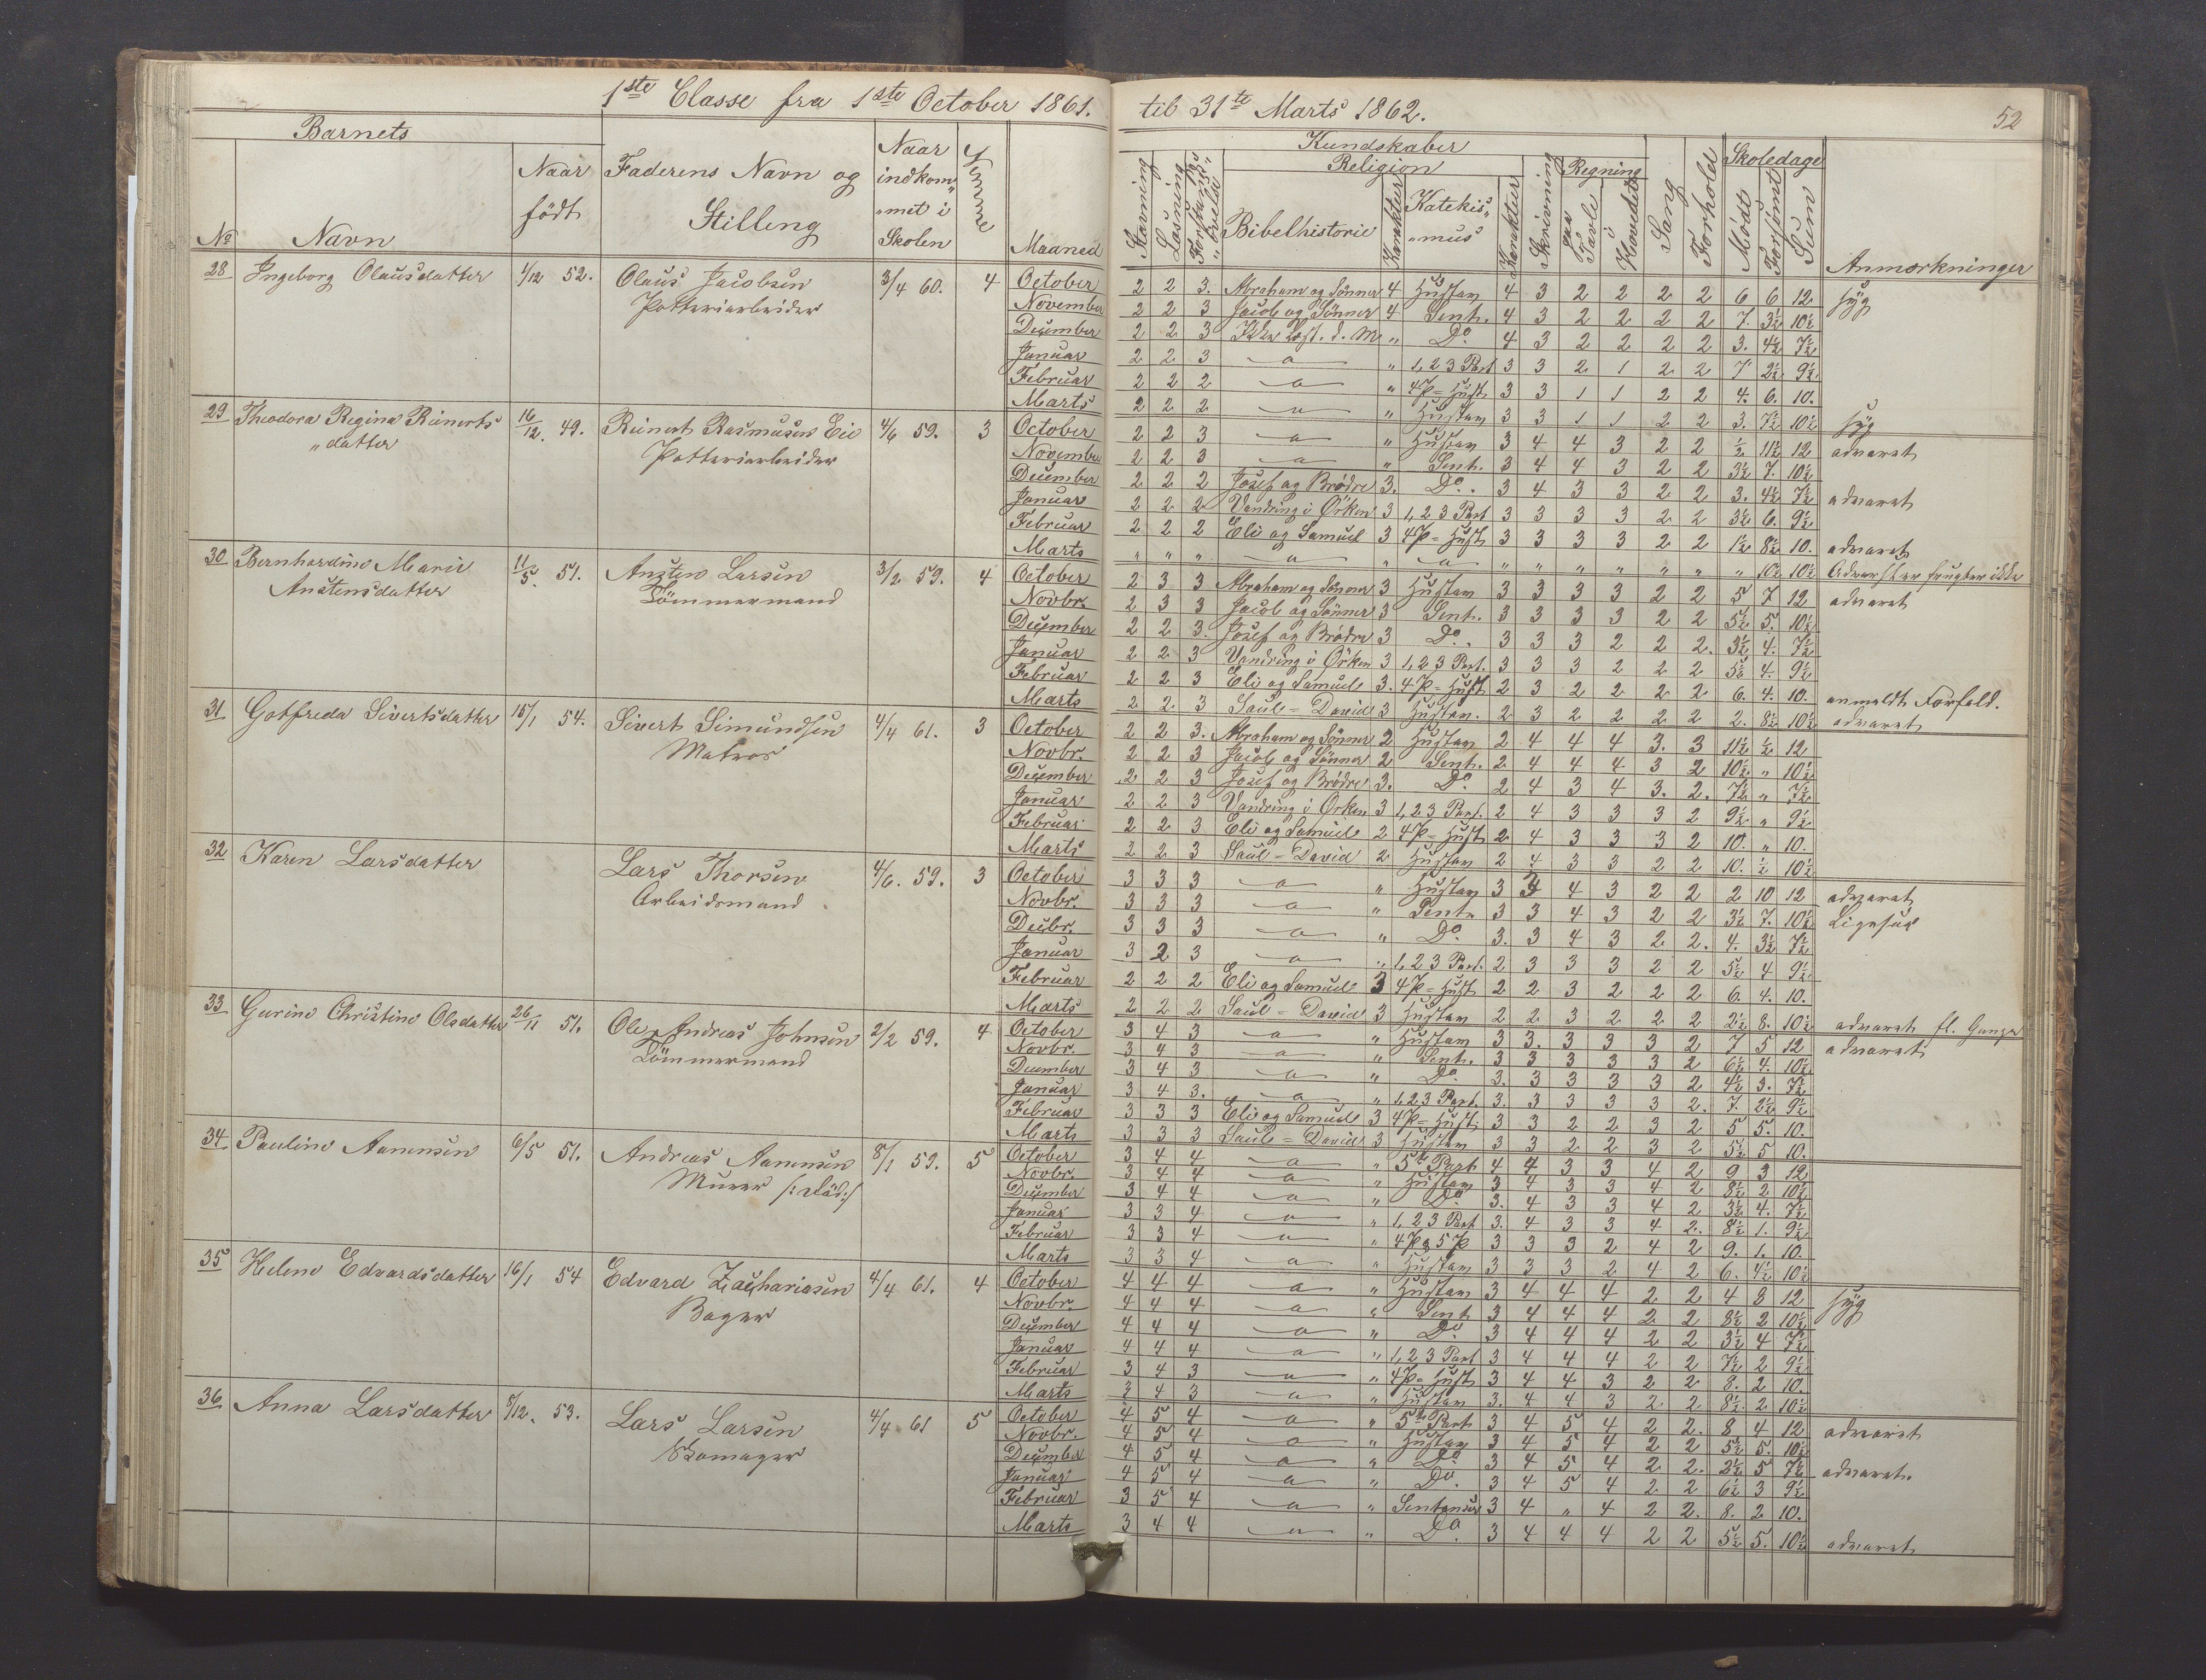 1ste Classe fra 1ste October 1861. til 31te Marts 1862. 52
Barnets
No Navn Naar födt Faderens Navn og Stilling Naar indkom„ „met i Skolen Stemme Maaned
Kundskaber
Religion Regning Skoledage
Stavning Læsning Bibelhistorie Karakter Katekis„ „mus Karakter Skrivning paa Tavle i Hovedet Sang Forhold Mödt Forsömt Sum Anmærkninger
28 Ingeborg Olausdatter 1/12 52. Olaus Jacobsen 3/4 60. 4 October
Pottariarbeider
November
December
Januar
Februar
Marts
29 Theodora Regina Reinerts 16/12. 49. Reinert Rasmusen Eie 4/6 59. 3 October
„datter Pottariarbeider
November
December
Januar
Februar
Marts
30 Bernhardine Marie 11/5. 51. Austen Larsen 3/2 59. 4 October
Austensdatter Tömmermand
Novbr.
December
Januar
Februar
Marts
31 Gotfreda Sivertsdatter 15/1 54. Sivert Simundsen 4/4 61. 3 October
Matros
Novbr.
December
Januar
Februar
Marts
32 Karen Larsdatter Lars Thorsen 4/6. 59. 3 October
Arbeidsmand
Novbr.
Decbr.
Januar
Februar
Marts
33 Gurine Christine Olsdatter 26/11 51. Ole Andreas Johnsen 2/2 59. 4 October
Tömmermand
Novbr.
December
Januar
Februar
Marts
34 Pauline Aanensen 6/5 51. Andreas Aanensen 8/1 59. 5 October
Murer /: död :/
Novbr.
December
Januar
Februar
Marts
35 Helene Edvardsdatter 16/1 54 Edvard Zachariasen 4/4 61. 4 October
Bager
Novbr.
December
Januar
Februar
Marts
36 Anna Larsdatter 8/12. 53. Lars Larsen 4/4 61 5 October
Skomager
Novbr.
December
Januar
Februar
Marts
2 2 3. Abraham og Sönner 4 Justam 4 3 2 2 2 2 6 6 12 syg
2 2 3 Jacob og Sönner 4 Sent. 4 3 2 2 2 2 7. 3½ 10½
2 2 3 Ikke Læst. d. M „ Do 4 3 2 2 2 2 3. 4½ 7½
2 2 3 „ 1, 2 3 Part 3 3 2 1 2 2 7 2½ 9½
2 2 2 „ 3 3 1 1 2 2 4. 6. 10.
2 2 2 „ 3 3 1 1 2 2 3. 7½ 10½ syg
2 2 3 „ 3 4 4 3 2 2 ½ 11½ 12 advaret
2 2 3 „ Sent. 3 4 4 3 2 2 3½ 7. 10½
2 2 2 Josef og Brödre 3. Do. 3 4 3 3 2 2 3. 4½ 7½ advaret
2 2 2 Vandring i Örken 3 1, 2 3 Part 3 3 3 3 2 2 3½ 6. 9½
2 2 2 Eli og Samuel 3 3 3 3 3 2 2 1½ 8½ 10. advaret
„ „ „ „ „ „ „ „ „ „ „ 10½ 10½
2 3 3 Abraham og Sönner 3 3 3 3 3 2 2 5 7 12 advaret
2 3 3 Jacob og Sönner 3 Sent. 3 3 3 3 2 2 5½ 5. 10½
2 2 3. Josef og Brödre 3 Do. 3 3 3 2 2 2. 3½ 4. 7½
2 2 3 Vandring i Örken 3 1, 2 3 Part. 3 3 3 2 2 2 5½ 4. 9½
2 2 3 Eli og Samuel 3. 2 3 2 2 2 2 6. 4. 10. anmeldt Forfald.
2 2 3 Saul = David 3 2 3 2 2 2 2 2. 8½ 10½ advaret
2 2 3. Abraham og Sönner 2 2 4 4 4 3. 3 11½ ½ 12
2 2 3 Jacob og Sönner 2 Sent. 2 4 4 4 3 2 10½ „ 10½
2 2 3 Josef og Brödre 3. Do 2 4 3 4 3. 2. 7½ „ 7½
2 2 3 Vandring i Örken 3 1, 2 3 Part. 2 4 3 3 3 2 9½ „ 9½
2 2 3 Eli og Samuel 2 2 4 3 3 3 2 10. „ 10.
2 2 3 Saul = David 2 2 4 3 3 2 2 10. ½ 10½
3 3 3 „ 3 4 4 3 2 2 2 10 12 advaret
3 3 3 „ Sent. 3 3 4 3 2 2 3½ 7. 10½
3 3 3 „ Do. 3. 3 4 3 2 2. 4. 3½ 7½
3 2 3 „ 1, 2 3 Part. 2 3 3 3 2 2 5½ 4 9½
2 2 2 Eli og Samuel 3 2 2 3 2 2 2 6. 4. 10.
2 2 2 Saul = David 3 2 2 3 2 2 2 2½ 8. 10½ advaret fl. Gange
3 4 3 „ 3 3. 3 3 3 2 7 5 12 advaret
3 4 3 „ Sent. 3 3 3 3 3 2 6½ 4. 10½
3 4 3 „ Do 3. 3 3 3 3 2 4½ 3. 7½
3 4 3. „ 1, 2 3 Part. 3. 3 3 3 3 2. 7. 2½ 9½
3 3 3 Eli og Samuel 3 3 3 2 2 3 2 5 5. 10.
3 3 3 Saul = David 3 3 3 2 2 3 2 5½ 5 10.
3 4 4 „ 5te Part 4 4 3 3 4 2 9 3 12
3 4 4 „ 3 4 3 3 4 2 8½ 2 10½
3 4 4 „ Do 3. 4 3 3 4 2 3½ 4. 7½
3 3 4 „ 1, 2 3 Part 3. 4 3 3 4 2. 8½ 1. 9½
3 3 4 „ 4 P & 5 P 3 3 3 2 4 2 9. 1. 10.
3 3 4 „ 3 3 3 2 4 2 6. 4½ 10½
4 4 4 „ 3 4 4 4 2 2 4 8 12 syg
4 4 4 „ Sent 3 4 4 4 2 2 8½ 2 10½
4 4 4 „ Do 3 4 4 4 2 2 3½ 4 7½
4 4 4 „ 1, 2 3 Part 3 4 4 4 2 2 7½ 2 9½
3 4 3 „ 3 4 4 3 2 2 8. 2 10.
3 4 3 „ 3. 4 4 3 2 2 8½ 2 10½
4 5 4 „ 5te Part 3 4 5 4 2 2. 8 4 12 advaret
4 5 4 „ 3 4 5 4 2 2 5½ 5. 10½
4 5 4 „ Do 3 4 5 4 2 2. 2½ 5 7½ advaret.
4 5 4 „ Do. 3 4 5 4 2 2 6½ 3 9½
3 5 4 „ Sentenser 3 4 „ 4 2 2. 8. 2 10.
3 4 4 „ Do. 3 4 4 4 2 2 5½ 5. 10½ advaret